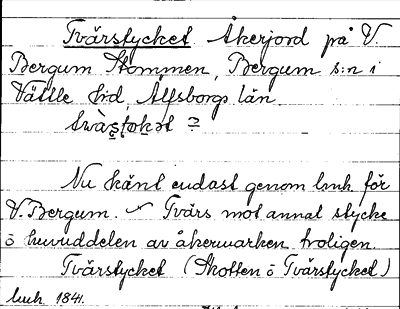 Tvärstycket Åkerjord på V
Bergum Stommen, Bergum s:n i
Vättle hd, Älfsborgs län.
Nu känt endast genom lmh. för
V. Bergum. Tvärs mot annat stycke
ö huvuddelen av åkermarken troligen.
Tvärstycket (Skotten ö Tvärstycket)
lmh 1841.